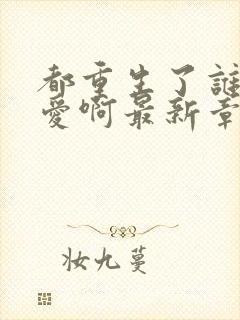 都重生了誰
愛啊最新章
妝九蔓